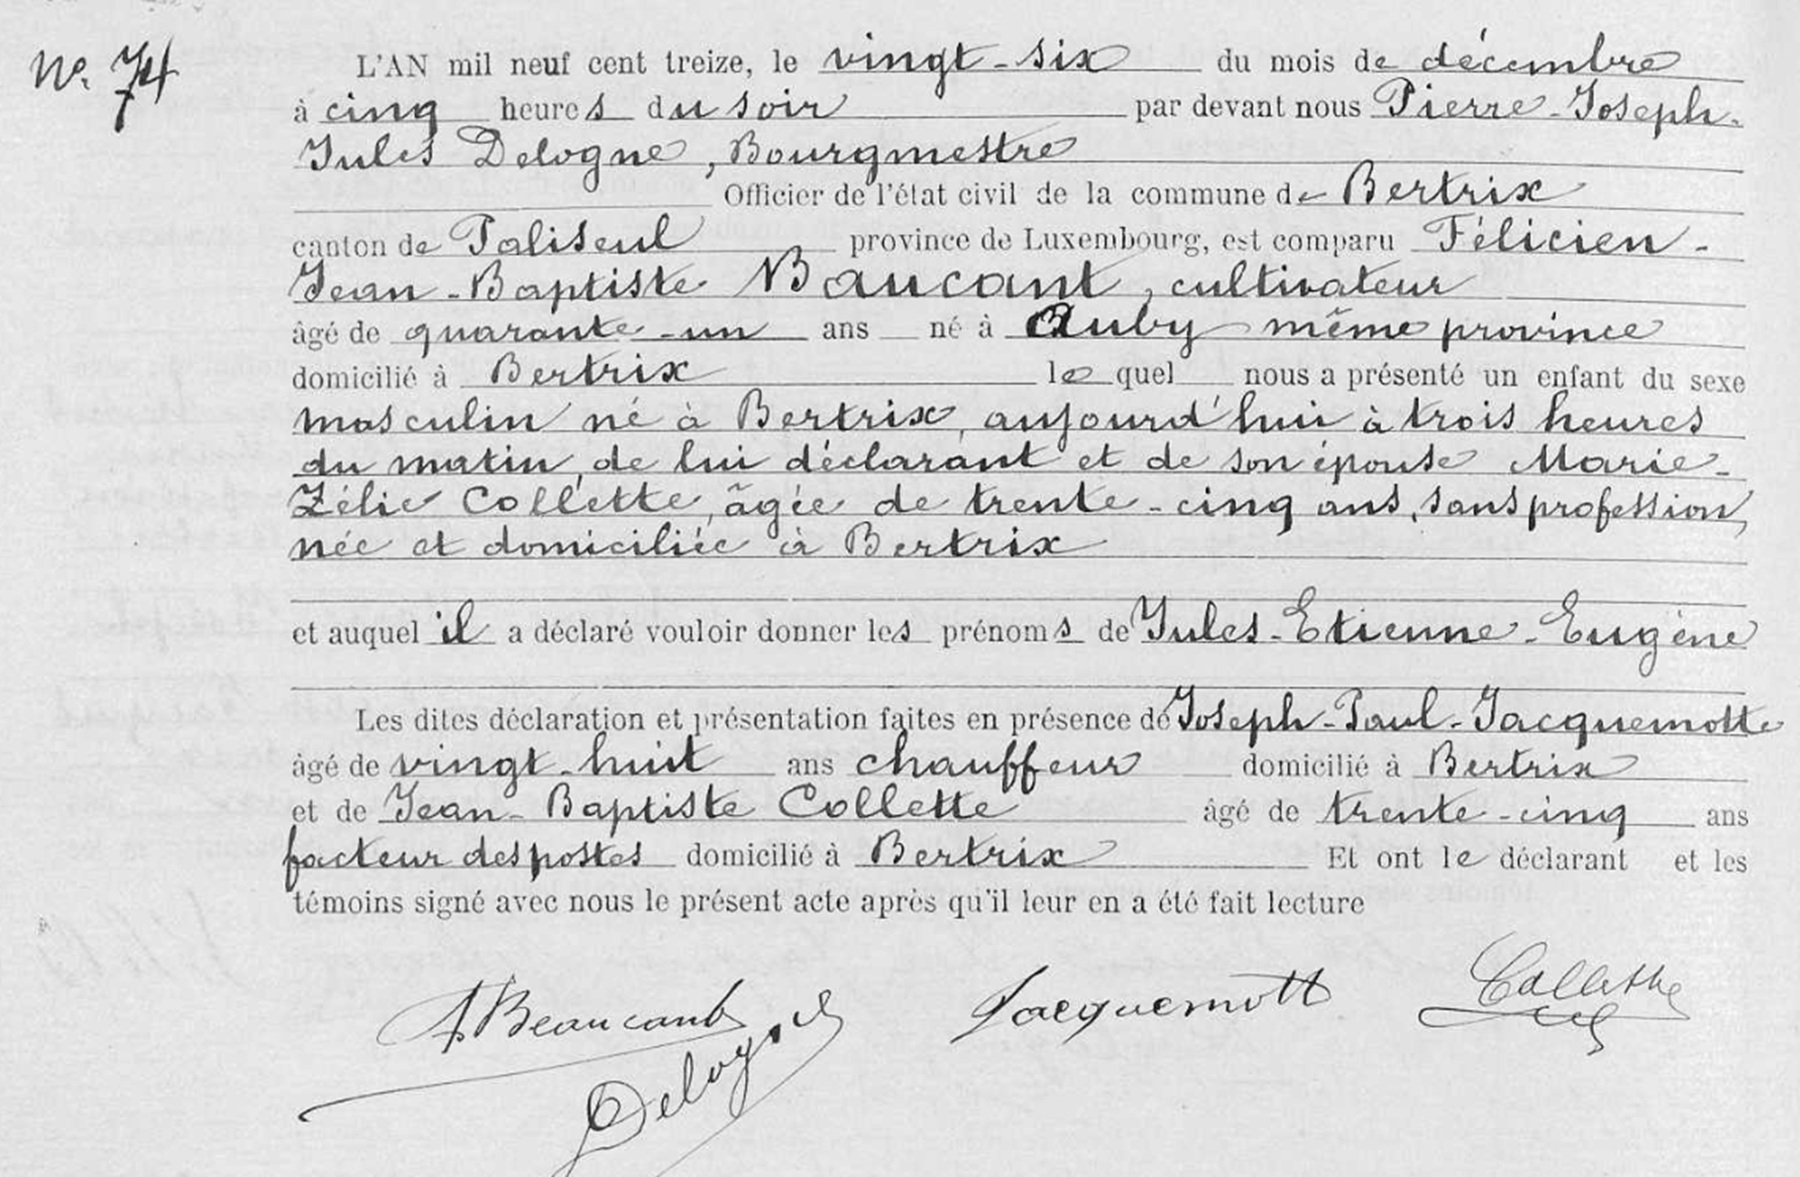 N°. 74
L'AN mil neuf cent treize, le vingt-six du mois de décembre
à cinq heures du soir par devant nous Pierre-Joseph-
Jules Delogne, Bourgmestre
Officier de l'état civil de la commune de Bertrix
canton de Paliseul province de Luxembourg, est comparu Félicien-
Jean-Baptiste Baucant, cultivateur
âgé de quarante-un ans né à Auby même province
domicilié à Bertrix lequel nous a présenté un enfant du sexe
masculin né à Bertrix, aujourd'hui à trois heures
du matin, de lui déclarant et de son épouse Marie-
Zélie Collette, âgée de trente-cinq ans, sans profession,
née et domiciliée à Bertrix
et auquel il a déclaré vouloir donner les prénoms de Jules-Etienne-Eugène
Les dites déclaration et présentation faites en présence de Joseph-Paul-Jacquemotte
âgé de vingt-huit ans chauffeur domicilié à Bertrix
et de Jean-Baptiste Collette âgé de trente-cinq ans
facteur des postes domicilié à Bertrix Et ont le déclarant et les
témoins signé avec nous le présent acte après qu'il leur en a été fait lecture
Beaucant Jacquemott Collette
Delogne